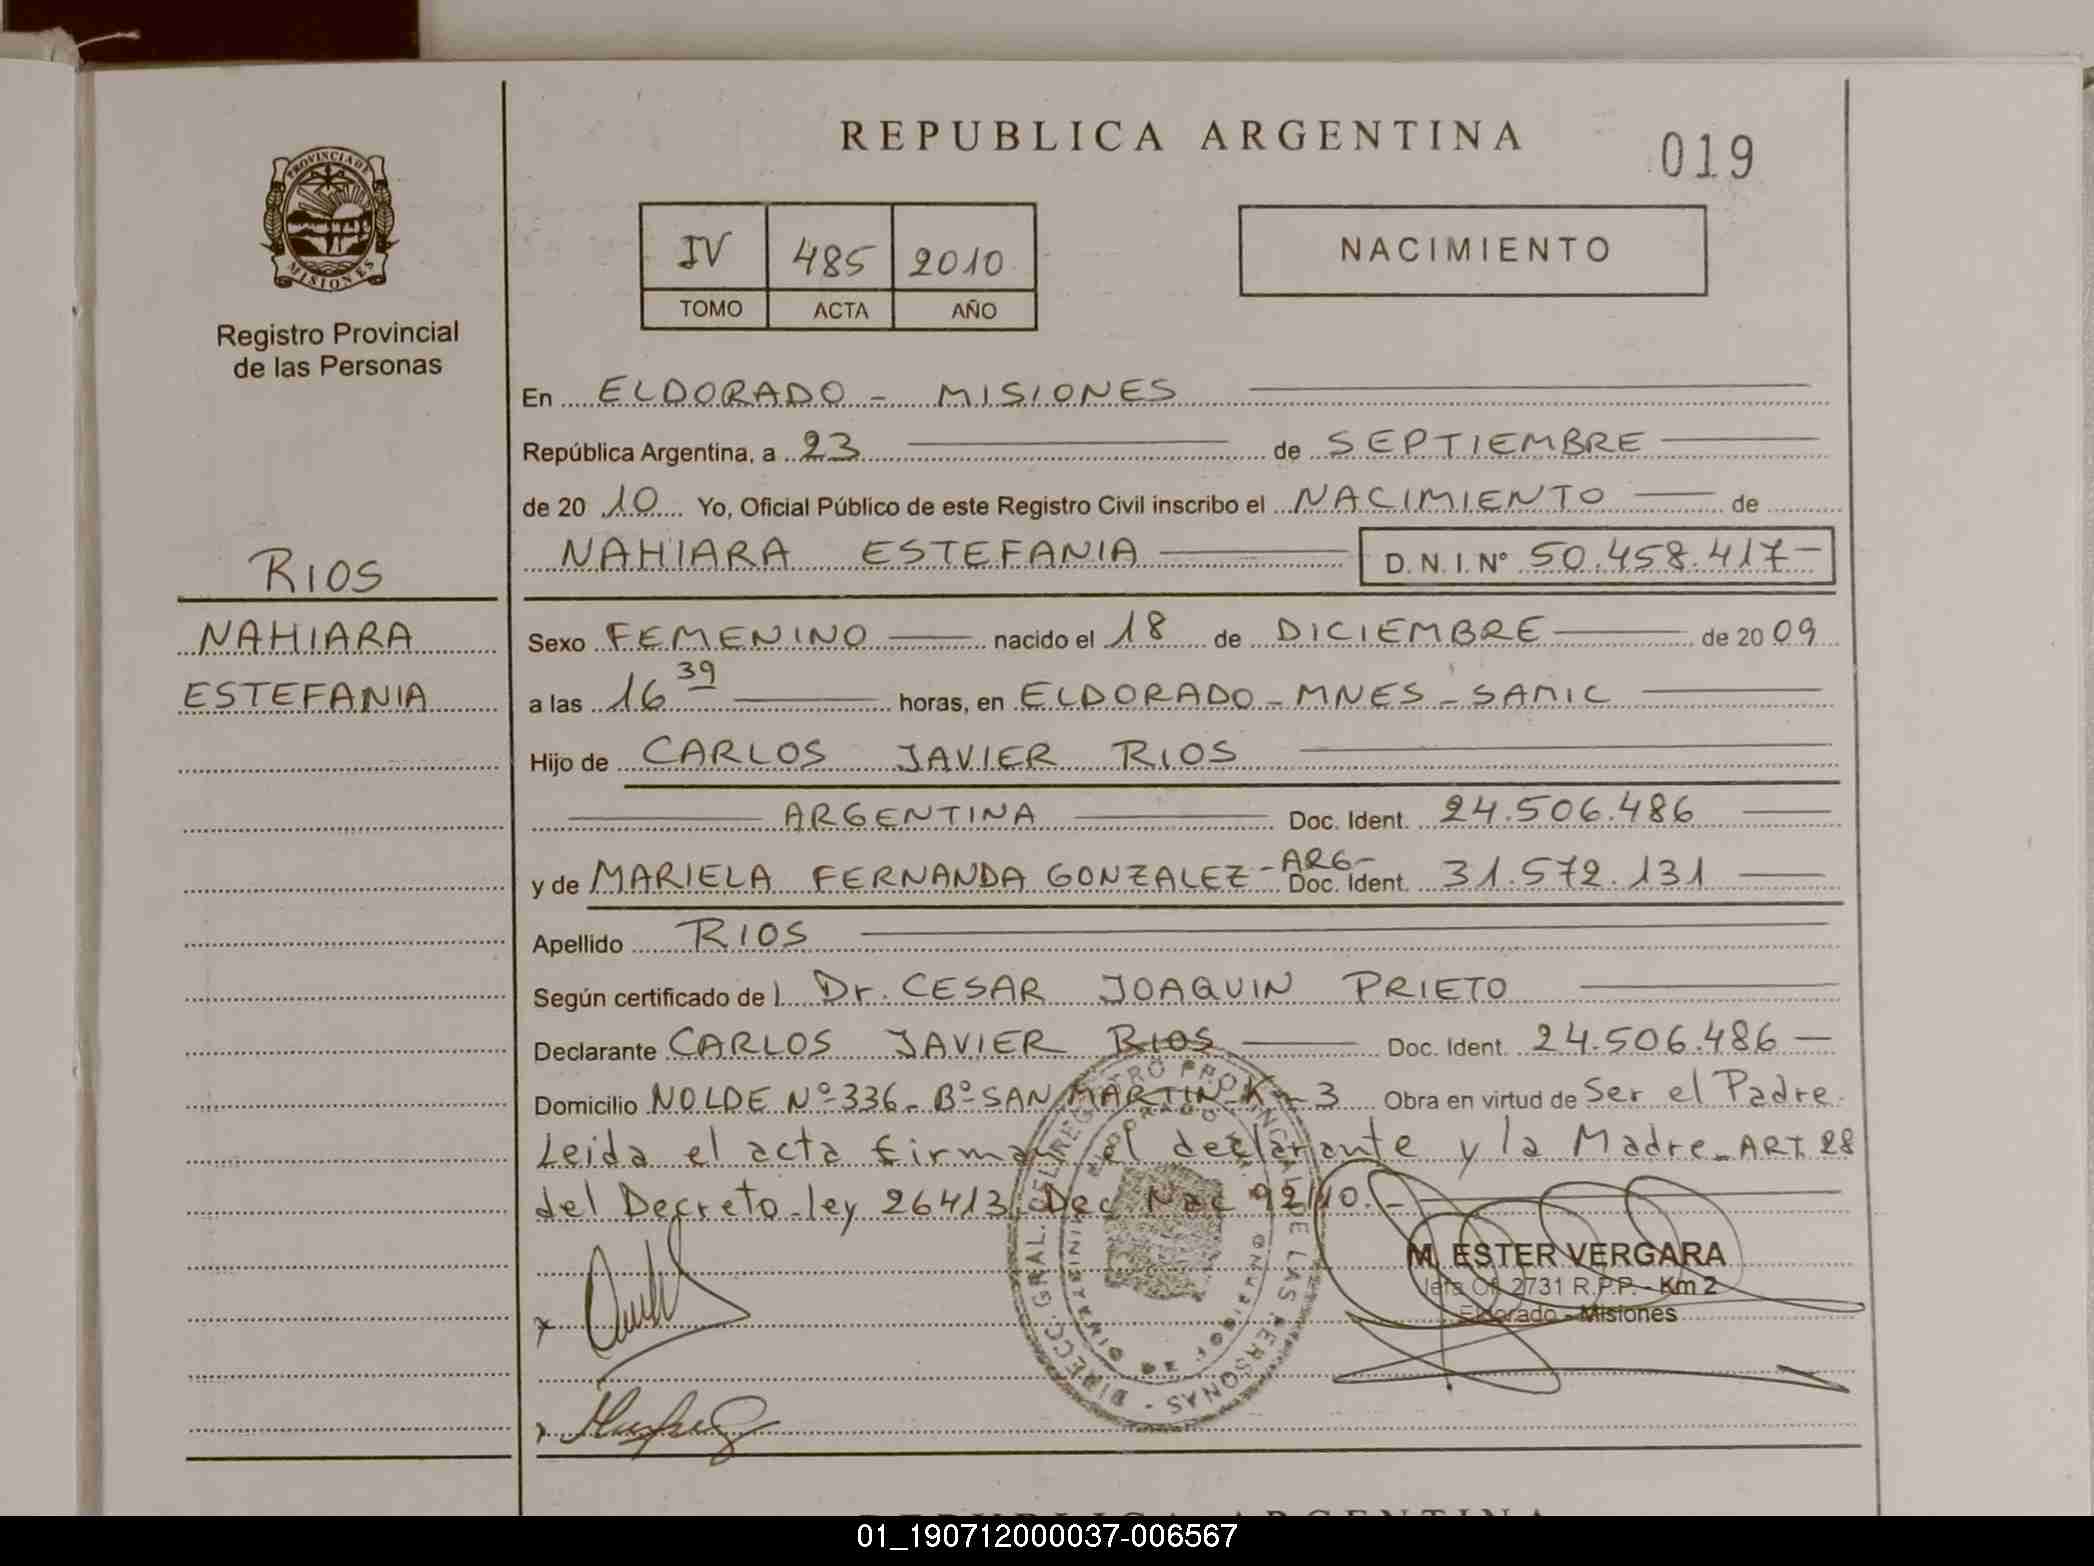 REPUBLICA ARGENTINA
019
PROVINCIA DE
MISIONES
Registro Provincial
de las Personas
IV 485 2010
TOMO ACTA AÑO
NACIMIENTO
En ELDORADO - MISIONES
República Argentina, a 23 de SEPTIEMBRE
de 20 10 Yo, Oficial Público de este Registro Civil inscribo el NACIMIENTO de
NAHIARA ESTEFANIA D. N. I. Nº 50.458.417-
RIOS
NAHIARA
ESTEFANIA
Sexo FEMENINO nacido el 18 de DICIEMBRE de 20 09
a las 16 39 horas, en ELDORADO - MNES - SAMIC
Hijo de CARLOS JAVIER RIOS
ARGENTINA Doc. Ident. 24.506.486
y de MARIELA FERNANDA GONZALEZ - ARG- Doc. Ident. 31.572.131
Apellido RIOS
Según certificado de l Dr. CESAR JOAQUIN PRIETO
Declarante CARLOS JAVIER RIOS Doc. Ident. 24.506.486
Domicilio NOLDE Nº 336 - Bº SAN MARTIN - Km 3 Obra en virtud de Ser el Padre.
Leida el acta firman el declarante y la Madre - ART. 28
del Decreto - ley 26413. Dec Nac 92/10.-
DIRECC. GRAL. DEL REGISTRO PROVINCIAL DE LAS PERSONAS
M. ESTER VERGARA
Jefa Of. 2731 R.P.P. - Km 2
Eldorado - Misiones
REPUBLICA ARGENTINA
01_190712000037-006567